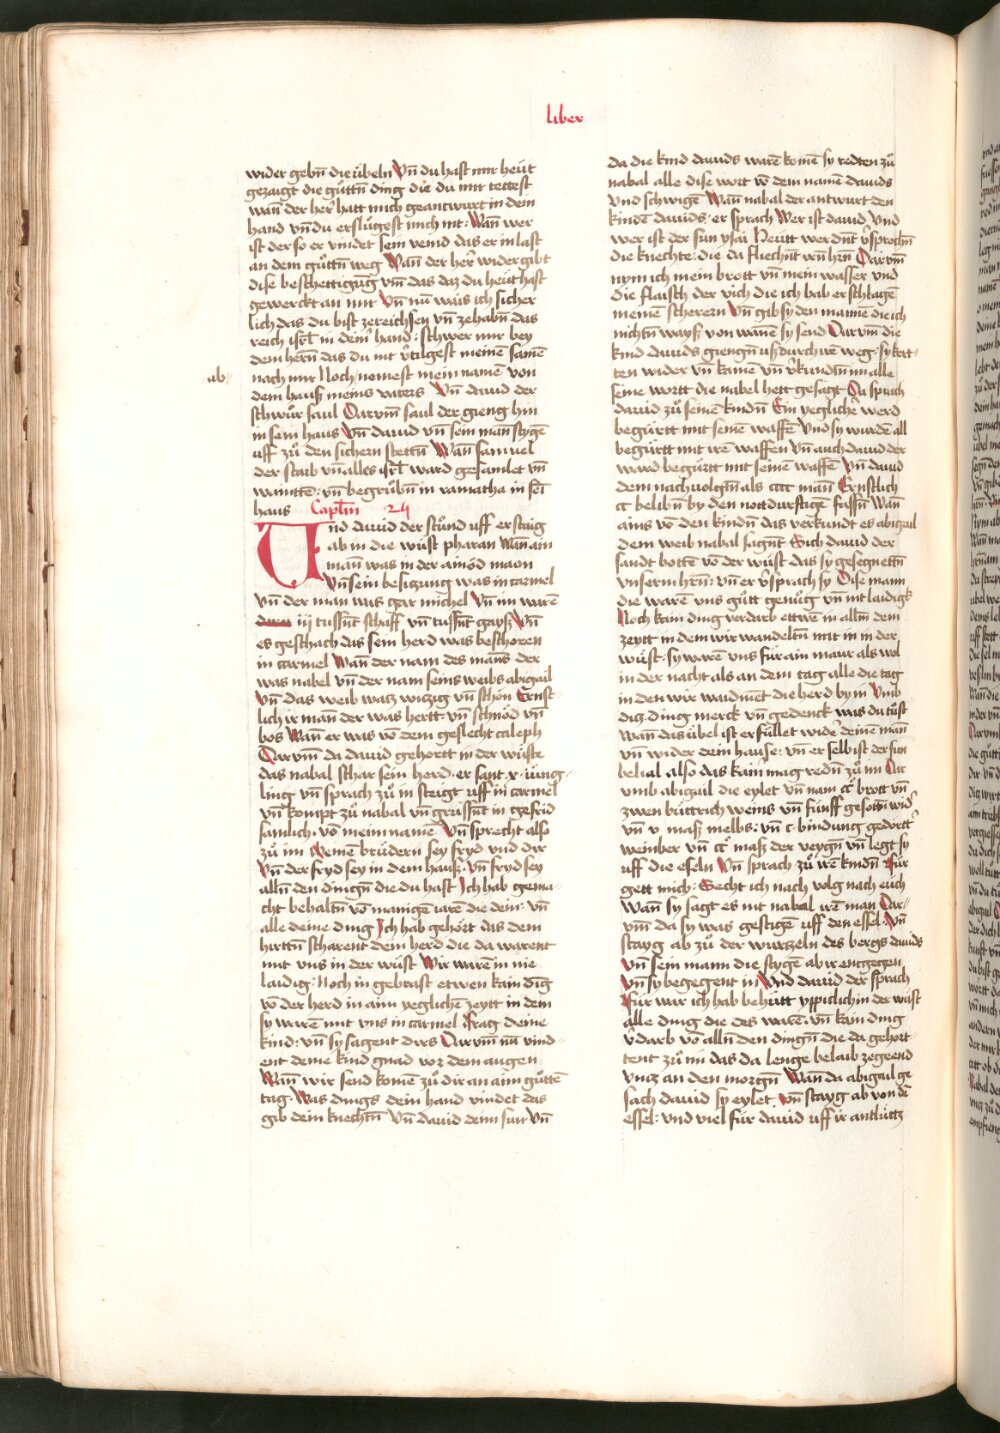 liber
wider gebn̄ die übeln Vn̄ du hast mir heüt
gezaigt die gu̇ttn̄ ding die du mit tettest
wan̄ der her hatt mich geantwurt in dem
hand vn̄ du erslu̇gest mich nit: Wan̄ wer
ist der so er vindet sein veind das er in last
an dem gu̇ttn̄ weg Wan̄ der her wider gibt
dise beschettigūg vm̄ das daz du heüt hast
gewerckt an mir Vn̄ nu̅ wais ich sicher
lich das du bist zereichsen vn̄ zehabn̄ das
reich isrl̄ in dein hand: schwer mir bey
dem hern̄ das du mit v̉tilgest meinē samē
nach mir Noch nemest mein namē von
ab//
dem hauß meins vaters Vn̄ dauid der
schwu̇r saul Darvm̄ saul der gieng hin
in sein haus Vn̄ dauid vn̄ sein man̄ stygē
uff zu̇ den sichern stettn̄ Wan̄ samuel
der starb vn̄ alles isrl̄ ward gesamlet vn̄
waintte: vn̄ begru̇bn̄ in ramatha in sei
haus Caplm̄ 24
Vnd dauid der stu̇nd uff er staig
ab in die wüst pharan Wan̄ ain
man̄ was in der ainöd maon
Vn̄ sein besitzung was in carmel
vn̄ der man was gar michel Vn̄ im warē
iij tussn̄t schaff vn̄ tussn̄t gayß Vn̄
es geschach das sein herd was beschoren
in carmel Wan̄ der nam des mans der
was nabel vn̄ der nam seins weibs abigail
vn̄ das weib watz witzig vn̄ schön Ernst
lich ir man̄ der was hertt vn̄ schnöd vn̄
bos Wan̄ er was vō dem geslecht caleph
Darvm̄ da dauid gehortt in der wüste
das nabal schar sein herd er sant x iung-
ling vn̄ sprach zu̇ in steigt uff in carmel
vn̄ kompt zu̇ nabal vn̄ grüssn̄t in i̅ gefrid
samlich vō meim namē Vn̄ sprecht also
zu̇ im Meinē brüdern sey fryd vnd dir
Vn̄ der fryd sey in dem hauß: vn̄ fryd sey
alln̄ den dingn̄ die du hast Ich hab gema-
cht behaltn̄ vō manigē iarē die dein vn̄
alle deine ding Ich hab gehört das dein
hirttn̄ scharent dein herd die da warent
mit vns in der wüst Wir warē in nie
laidig: Noch in gebrast etwen kain dīg
vō der herd in aim yeglichē zeytt in dem
sy warē mit vns in carmel Frag deine
kind: vn̄ sy sagent dirs Darvm̄ nū vind-
ent deine kind gnad vor dem augen
Wan̄ wir send komē zu̇ dir an aim gu̇ttē
tag Was dings dein hand vindet das
gib dein knechtn̄ Vn̄ dauid deim sun Vn̄
da die kind dauids warē komē sy redten zu̇
nabal alle dise wort vō dem namē dauids
vnd schwigē Wan̄ nabal der antwurt den
kindē dauids er sprach Wer ist dauid Vnd
wer ist der sun ysai Heütt werdn̄t v̉sprochn̄
die knechte: die da fliechn̄t irn̄ hern̄ Darvm̄
nym ich mein brott vn̄ mein wasser vnd
die flaisch der vich die ich hab erschlagē
meinē scherern Vn̄ gib sy den mannē die ich
nichtn̄ wayß von wanē sy send Darvm̄ die
kind dauids giengn̄ uß durch irē weg sy kert-
ten wider vn̄ kamē vn̄ v̉kundtn̄ im alle
seine wortt die nabel hett gesagt Da sprach
dauid zu̇ seinē kindn̄ Ein yeglicher werd
begürtt mit seinē waffē Vnd sy wurdē all
begürtt mit irē waffen vn̄ auch dauid der
ward begürtt mit seinē waffē Vn̄ dauid
dem nachuolgtn̄ als cccc man̄ Ernstlich
cc belibn̄ by den nottdurftigē fussn̄ Wan̄
ains vō den kindn̄ das verkundt es abigail
dem weib nabal sagn̄t Sich dauid der
sandt bottē vō der wüst das sy gesegnettn̄
vnserm hrn̄: vn̄ er v̉sprach sy Dise mann
die warē vns gu̇tt genu̇g vn̄ nit laidigk
Noch kain ding verdarb ettwē in allm̄ dem
zeytt in dem wir wandeltn̄ mit in in der
wüst: sy warē vns für ain maur als wol
in der nacht als an dem tag alle die tag
in den wir waidnēt die herd by in Vmb
daz ding merck vn̄ gedenck was du tu̇st
Wan̄ das übel ist erfüllet wider deinē man̄
vn̄ wider dein hause: vn̄ er selb ist der sun
belial also das kain mag redn̄ zu̇ im Dar
vmb abigail die eylet vn̄ nam cc brott vn̄
zwen büttrich weins vn̄ fünff gesottn̄ wid̉
vn̄ v maß melbs: vn̄ c bindung gedortt̉
weinber vn̄ cc maß der veygn̄ vn̄ legt sy
uff die eseln Vn̄ sprach zu̇ irē kindn̄ Für
gett mich: Secht ich nach volg nach euch
Wan̄ sy sagt es nit nabal irē man Dar-
vm̄ da sy was gestigē uff den essel: Vn̄
stayg ab zu̇ der wurtzeln des bergs dauids
vn̄ sein mann die stygē ab ir engegen
vn̄ sy begegent in Vnd dauid der sprach
Für war ich hab behütt yppiclich in der wüst
alle ding die des warē vn̄ kain ding
v̉darb vō alln̄ den dingn̄ die da gehort
tent zu̇ im das da lenge belaib zegeend
vntz an den morgn̄ Wan̄ da abigail ge
sach dauid sy eylet vn̄ stayg ab von dē
essel: vnd viel für dauid uff ir antlütz